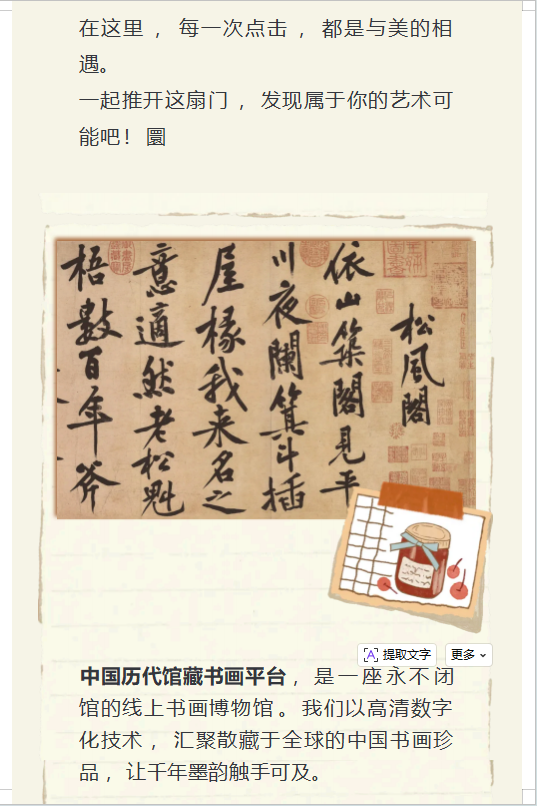 在这里 ， 每一次点击 ， 都是与美的相
遇。
一起推开这扇门 ， 发现属于你的艺术可
能吧！ 圜
松風閣
依山築閣見平
川夜闌箕斗插
屋椽我来名之
意適然老松魁
梧數百年斧
提取文字
更多
中国历代馆藏书画平台 ， 是一座永不闭
馆的线上书画博物馆 。我们以高清数字
化技术 ， 汇聚散藏于全球的中国书画珍
品 ， 让千年墨韵触手可及。